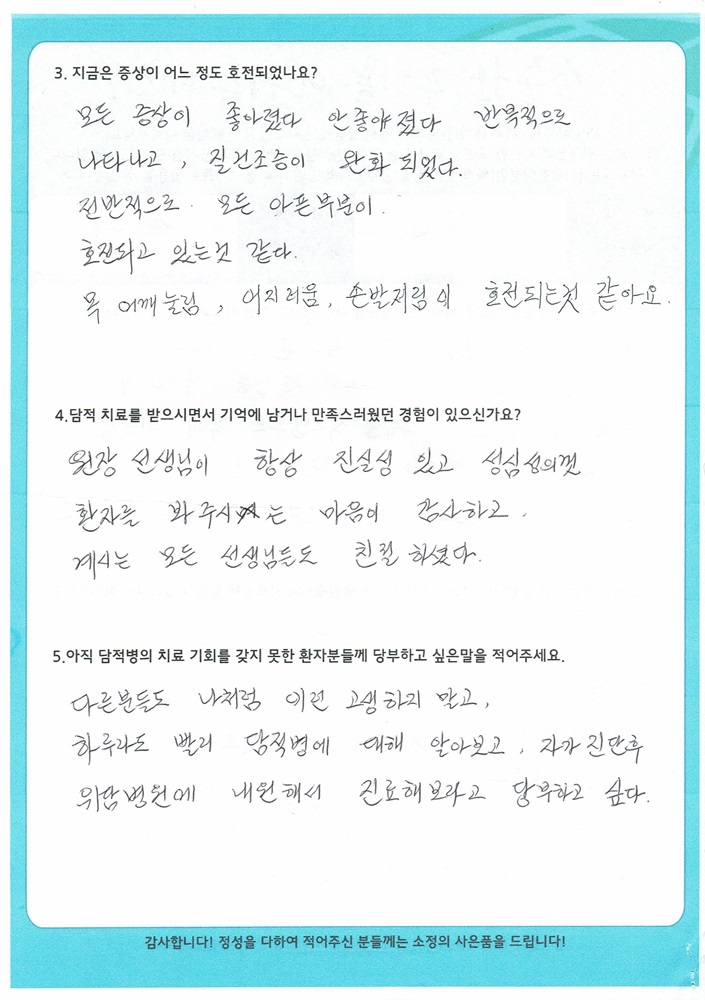 3. 지금은 증상이 어느 정도 호전되었나요?
모든 증상이 좋아졌다 안좋아졌다 반복적으로
나타나고, 질건조증이 완화 되었다.
전반적으로 모든 아픈부분이
호전되고 있는것 같다.
목 어깨눌림, 어지러움, 손발저림이 호전되는것 같아요.
4.담적 치료를 받으시면서 기억에 남거나 만족스러웠던 경험이 있으신가요?
원장 선생님이 항상 진실성 있고 성심성의껏
환자를 봐주시는 마음이 감사하고.
계시는 모든 선생님들도 친절하셨다.
5.아직 담적병의 치료 기회를 갖지 못한 환자분들께 당부하고 싶은말을 적어주세요.
다른분들도 나처럼 이런 고생하지 말고,
하루라도 빨리 담적병에 대해 알아보고, 자가진단후
위담병원에 내원해서 진료해보라고 당부하고 싶다.
감사합니다! 정성을 다하여 적어주신 분들께는 소정의 사은품을 드립니다!